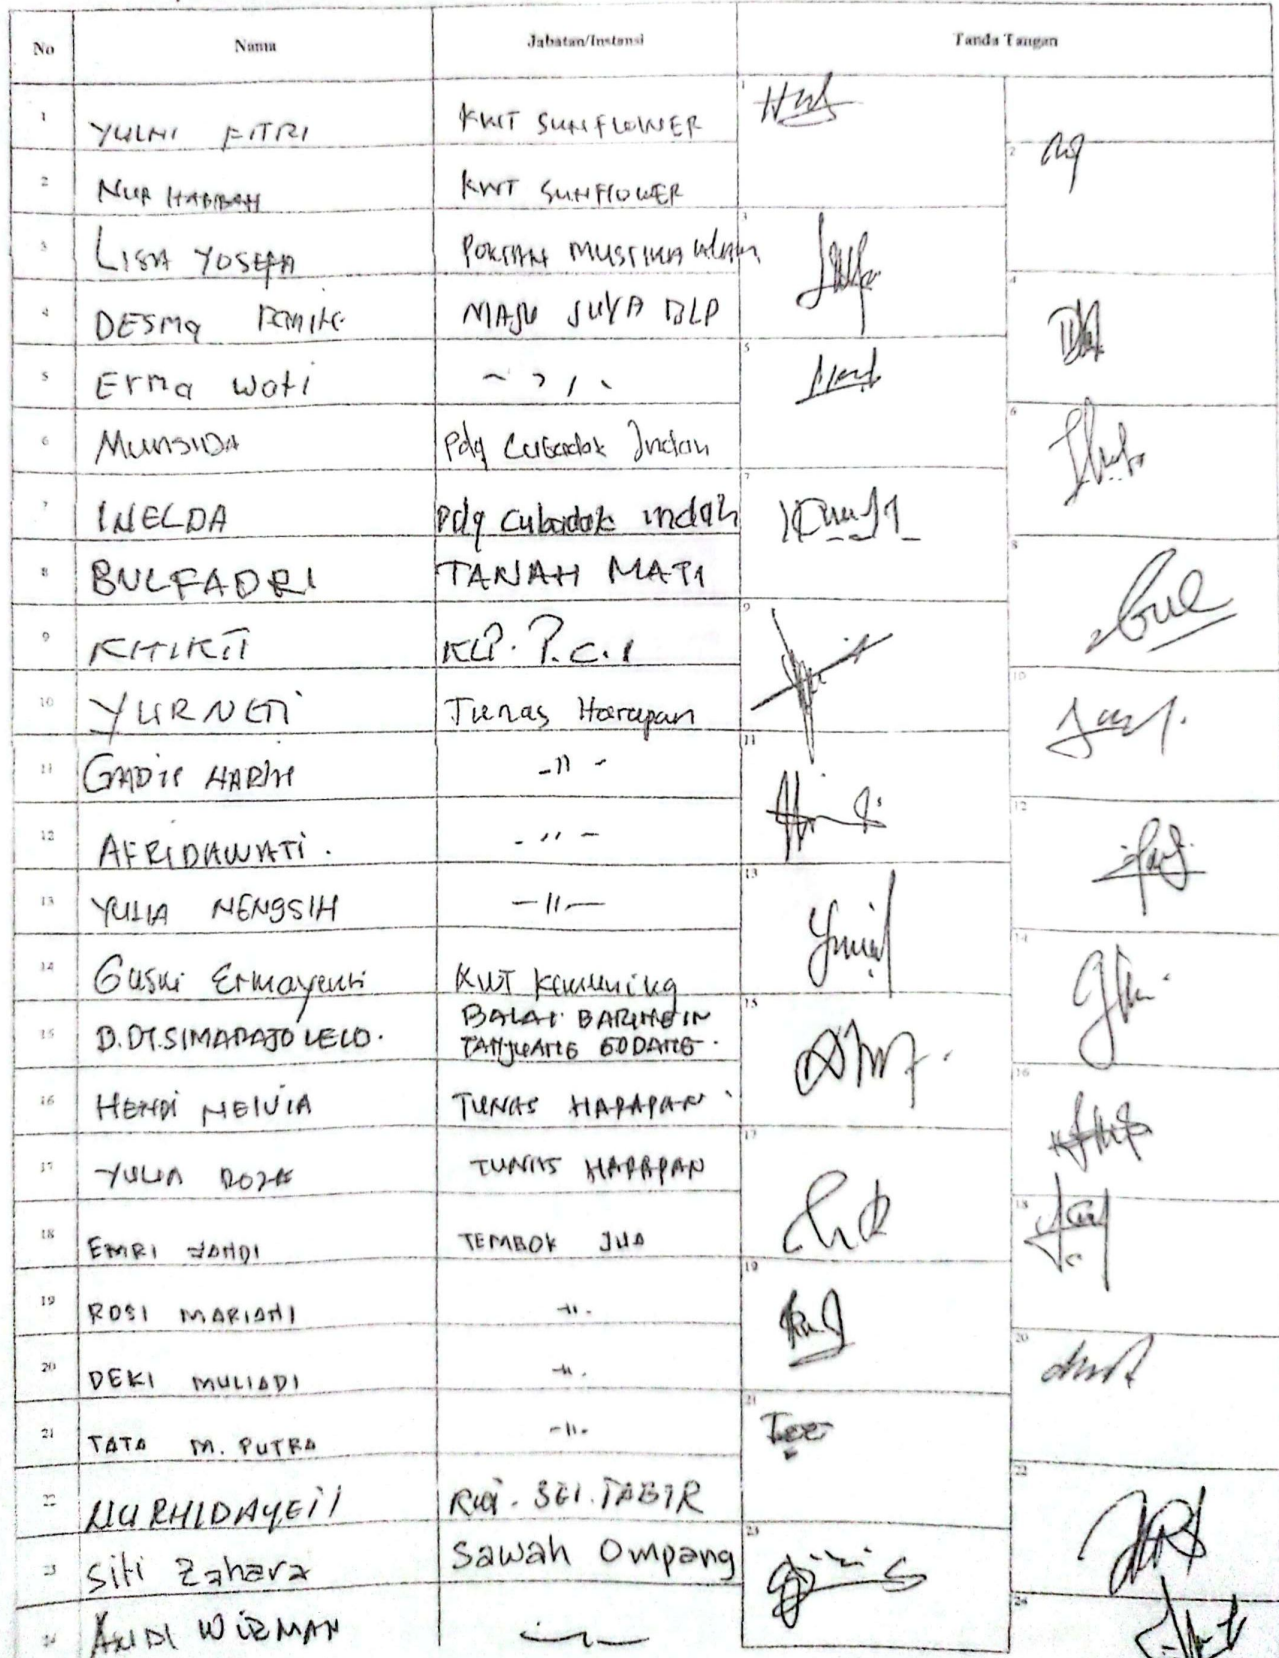 No Nama Jabatan/Instansi Tanda Tangan
1 YULNI FITRI KWT SUNFLOWER
2 NUR HABIBAH KWT SUNFLOWER
3 LISA YOSEFA POKTAN MUSTIKA
4 DESMA MAJU JUYA BLP
5 Erma Wati
6 MURSIDA Pdg Cubadak Indah
7 INELDA pdg Cubadak indah
8 BULFADRI TANAH MATI
9 KITIKTI KLP. P.C.I
10 YURNETI Tunas Harapan
11 GADIS HARIH -11-
12 AFRIDAWATI. -11-
13 YULIA NENGSIH -11-
14 Gusni Ermayanti KWT Kemuning
15 D.DT.SIMARAJO LELO. BALAI BARINGIN
TANJUANG GODANG.
16 HENDI MELVIA TUNAS HARAPAN
17 YULIA ROZA TUNAS HARAPAN
18 EMRI TEMBOK JUA
19 ROSI MARIANI -11-
20 DEKI MULIADI -11-
21 TATA M. PUTRA -11-
22 NURHIDAYETI SEI. TABIR
23 Siti Zahara Sawah Ompang
24 ANDI WIZMAN